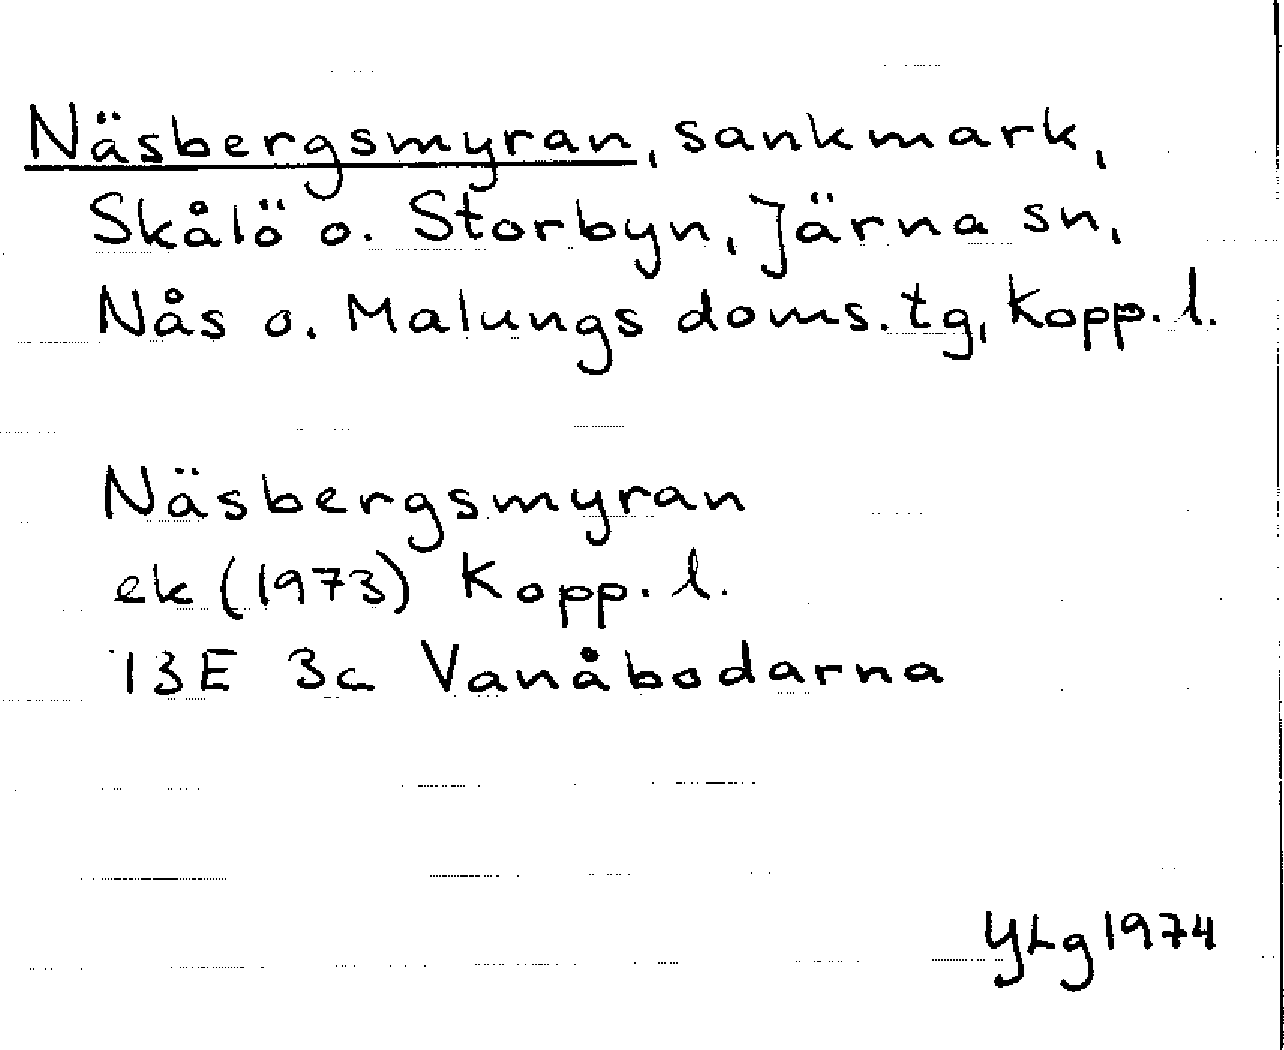 Näsbergsmyran, sankmark,
Skålö o. Storbyn, Järna sn,
Nås o. Malungs doms.tg, Kopp. l.
Näsbergsmyran
ek (1973) Kopp. l.
13E 3c Vanåbodarna
YLg 1974